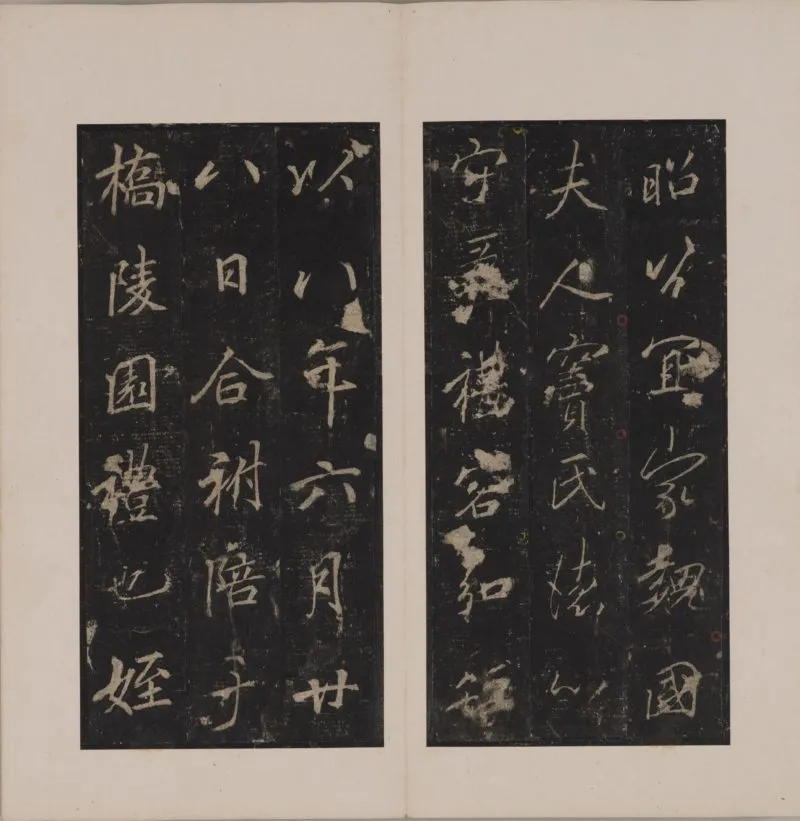 昭以宜家魏國
夫人竇氏
守禮容
以八年六月廿
八日合祔陪于
橋陵園禮也姪